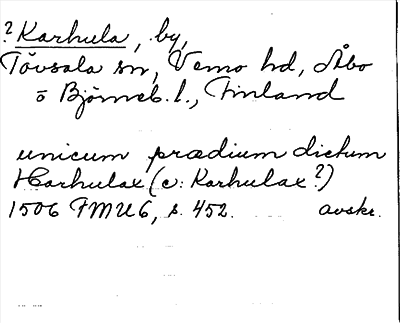 ? Karhula, by,
Tövsala sn, Vemo hd, Åbo
o Björneb. l., Finland
unicum prædium dictum
Harhulax (ɔ: Karhulax?)
1506 FMU6, s. 452. avskr.